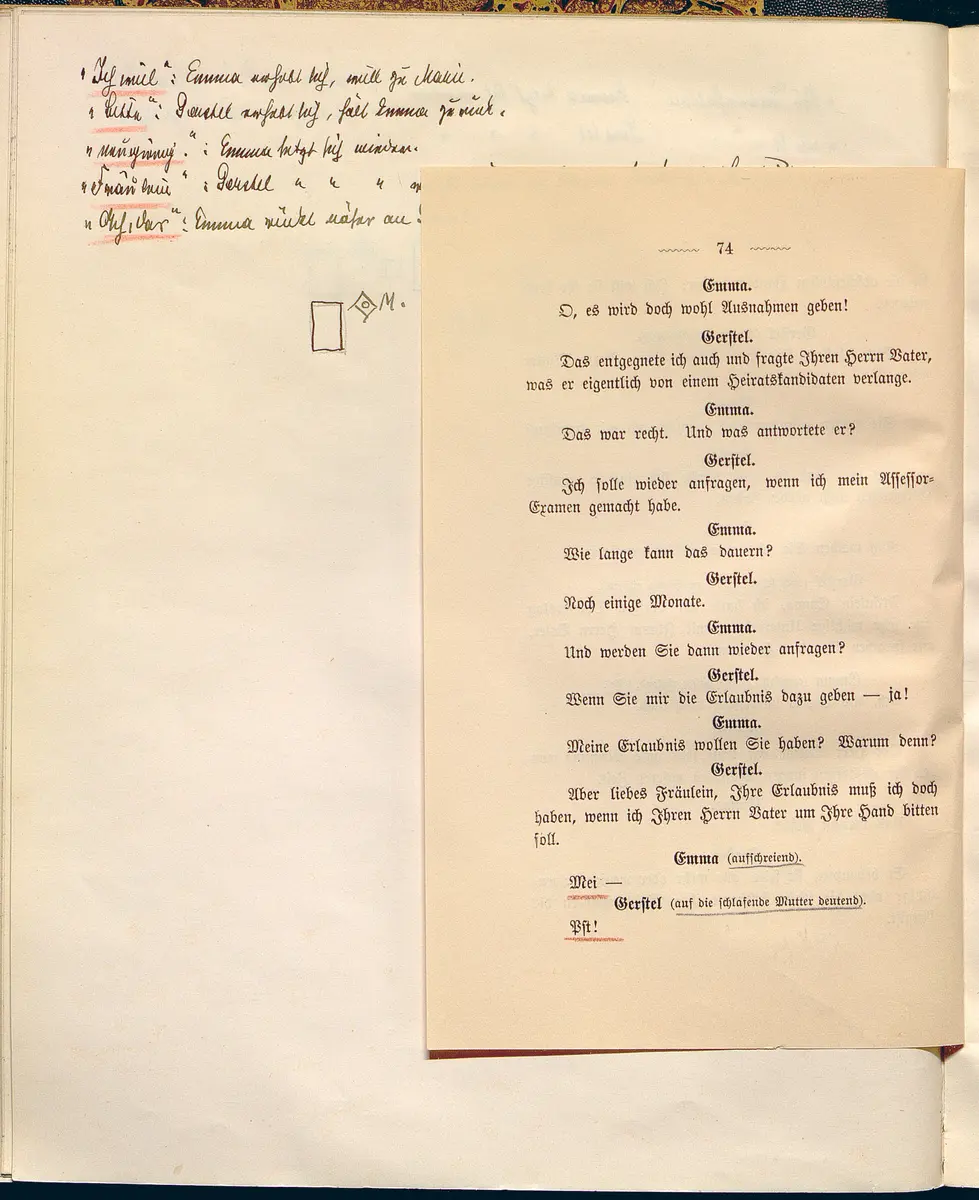 "Ich will": Emma erhebt sich, will zu Mama.
"Bitte": Gerstel erhebt sich, hält Emma zurück.
"neugierig.": Emma setzt sich nieder.
"Fräulein": Gerstel " " "
"Ach, das": Emma rückt näher an
M.
74
Emma.
O, es wird doch wohl Ausnahmen geben!
Gerstel.
Das entgegnete ich auch und fragte Ihren Herrn Vater,
was er eigentlich von einem Heiratskandidaten verlange.
Emma.
Das war recht. Und was antwortete er?
Gerstel.
Ich solle wieder anfragen, wenn ich mein Assessor-
Examen gemacht habe.
Emma.
Wie lange kann das dauern?
Gerstel.
Noch einige Monate.
Emma.
Und werden Sie dann wieder anfragen?
Gerstel.
Wenn Sie mir die Erlaubnis dazu geben — ja!
Emma.
Meine Erlaubnis wollen Sie haben? Warum denn?
Gerstel.
Aber liebes Fräulein, Ihre Erlaubnis muß ich doch
haben, wenn ich Ihren Herrn Vater um Ihre Hand bitten
soll.
Emma (aufschreiend).
Mei —
Gerstel (auf die schlafende Mutter deutend).
Pst!